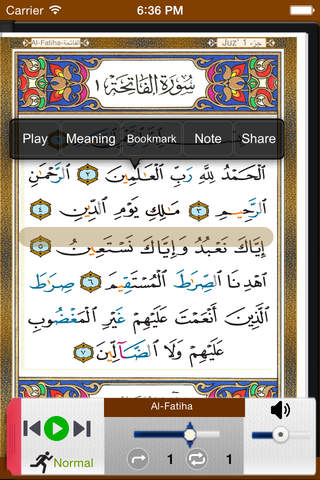 Carrier 6:36 PM
Al-Fatiha-الفاتحة جزء 1 'Juz
سُورَةُ الفَاتِحَةِ ١
Play Meaning Bookmark Note Share
الْحَمْدُ لِلَّهِ رَبِّ الْعَالَمِينَ ٢ الرَّحْمَٰنِ
الرَّحِيمِ ٣ مَالِكِ يَوْمِ الدِّينِ ٤
إِيَّاكَ نَعْبُدُ وَإِيَّاكَ نَسْتَعِينُ ٥
اهْدِنَا الصِّرَاطَ الْمُسْتَقِيمَ ٦ صِرَاطَ
الَّذِينَ أَنْعَمْتَ عَلَيْهِمْ غَيْرِ الْمَغْضُوبِ
عَلَيْهِمْ وَلَا الضَّالِّينَ ٧
Al-Fatiha
Normal 1 1